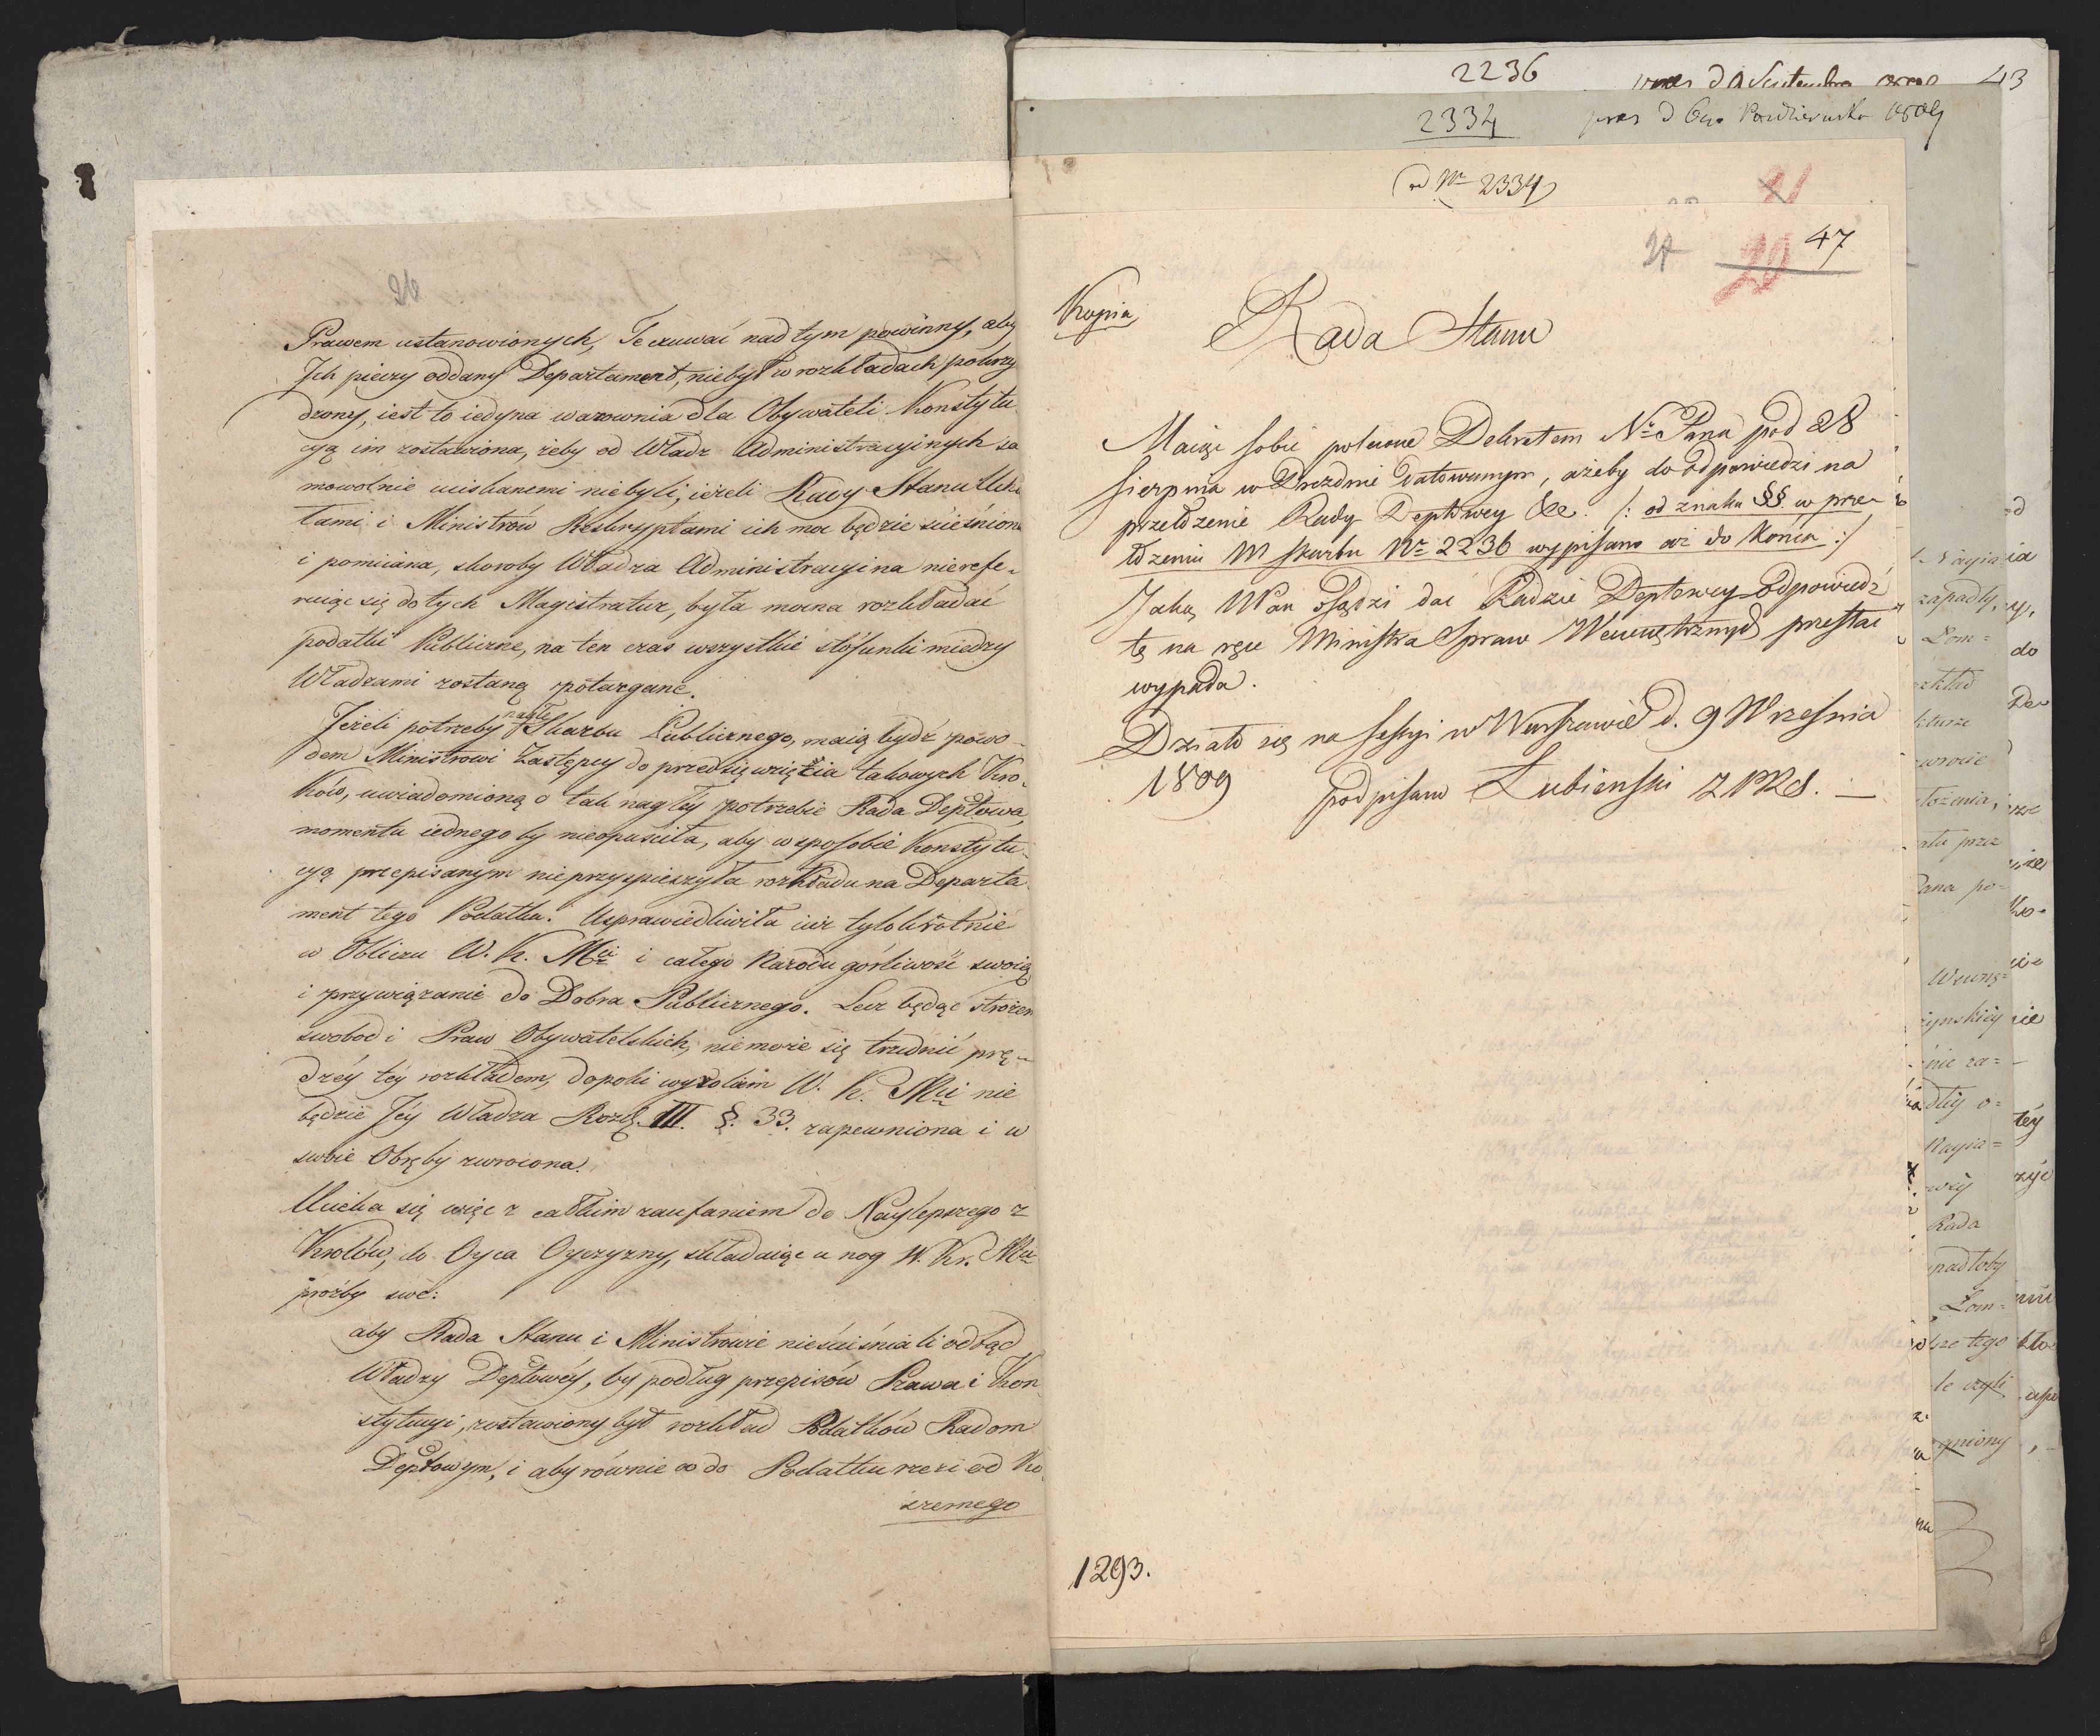 26
Prawem ustanowionych, Te czuwać nad tym powinny, aby
Ich pieczy oddany Departament, niebył w rozkładach pokrzy
dzony, iest to iedyna warownia dla Obywateli Konstytu
cyą im zostawiona, żeby od Władz Administracyinych sa
mowolnie uciskanemi niebyli; ieżeli Rady Stanu Uchw
łami i Ministrów Reskryptami ich moc będzie ścieśniona
i pomiiana, skoroby Władza Administracyina nierefe-
ruiąc się do tych Magistratur, była mocna rozkładać
podatki Publiczne, na ten czas wszystkie stósunki miedzy
Władzami zostaną potargane.
Jeżeli potrzeby nagłe Skarbu Publicznego, maią bydź powo-
dem Ministrowi Zastępcy do przedsięwzięcia takowych Kro-
ków, uwiadomioną o tak nagłéy potrzebie Rada Deptowa,
momentu iednego by nieopuściła, aby w sposobie Konstytu-
cyą przepisanym nieprzyspieszyła rozkładu na Departa-
ment tego Podatku. Usprawiedliwiła iuż tylokrotnie
w Obliczu W. K. Mci i całego Narodu górliwość swoią
i przywiązanie do Dobra Publicznego. Lecz będąc stróżem
swobod i Praw Obywatelskich, niemoże się trudnić prę-
dzéy téy rozkładem, dopoki wyrokiem W. K. Mci nie
będzie Jéy Władza Rozdz. III. §. 33. zapewniona i w
swoie Obręby zwrócona.
Ucieka się więc z całkim zaufaniem do Naylepszego z
Królów, do Oyca Oyczyzny, składaiąc u nog W. Kr. Mci
prożby swe:
aby Rada Stanu i Ministrowie nieścieśniali odtąd
Władzy Deptowéy, by podług przepisów Prawa i Kon-
stytucyi, zostawiony był rozkład Podatków Radom
Deptowym, i aby równie co do Podatku rzezi od Ko-
szernego
2236
43
2334
pres d 6go Pazdziernika 1809
ad Nr 2334
21
24
20
47
Kopia
Rada Stanu
Maiąc sobie polecone Dekretem N. Pana pod 28
Sierpnia w Dreznie datowanym, ażeby do odpowiedzi na
przełożenie Rady Deptowey &c. /: od znaku §§ w prze-
łożeniu M Skarbu Nr 2236 wypisano aż do Konca :/
Jaką WPan osądzi dać Radzie Deptowey Odpowiedź
tę na ręce Ministra Spraw Wewnętrznych przesłać
wypada.
Działo się na Sessyi w Warszawie d. 9 Września
1809 podpisano Lubienski Z PRS. —
1293.